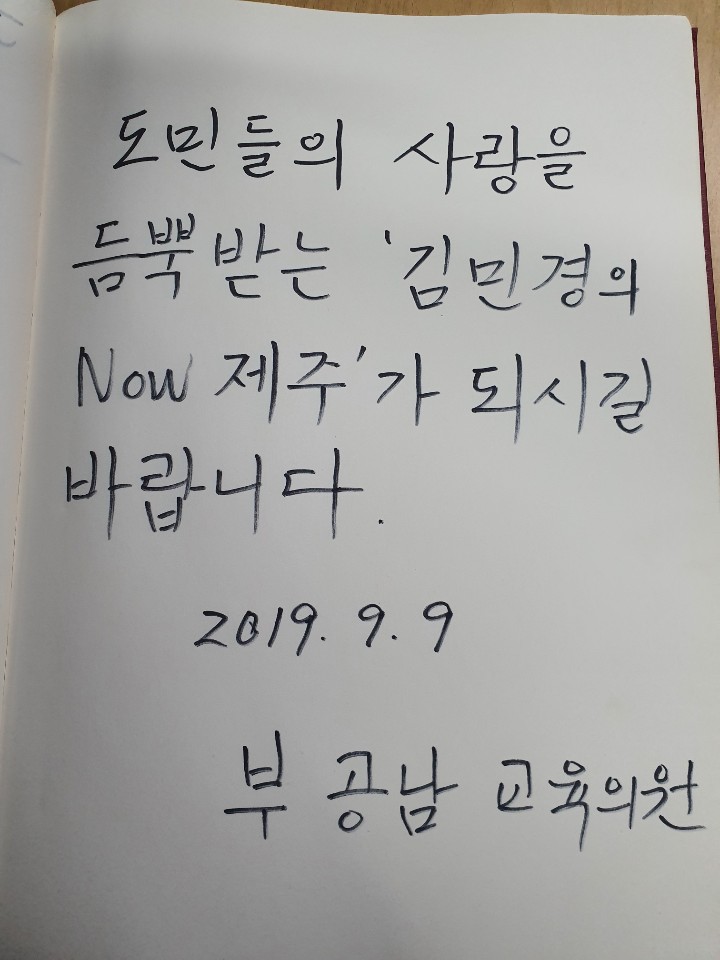 도민들의 사랑을
듬뿍받는 '김민경의
Now 제주'가 되시길
바랍니다.
2019. 9. 9
부 공남 교육의원